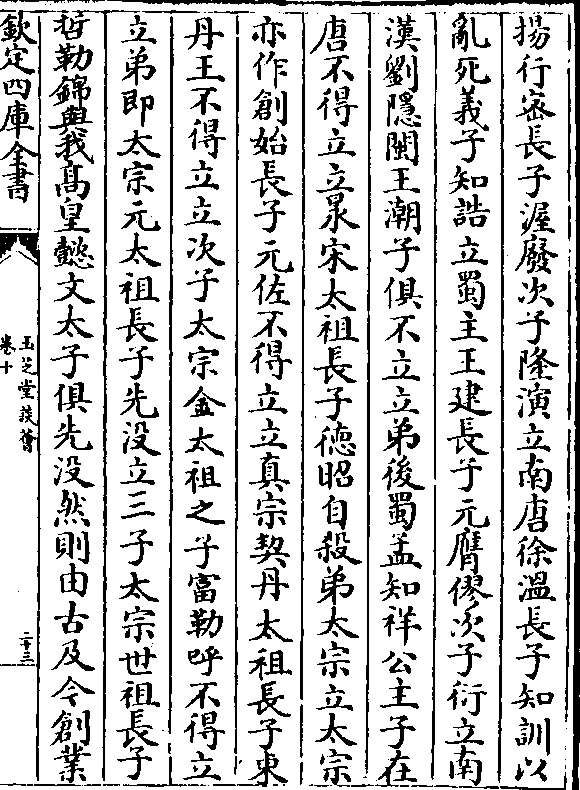 揚行密長子渥廢次子隆演立南唐徐溫長子知訓以
亂死義子知誥立蜀主王建長子元膺僇次子衍立南
漢劉隱閩王潮子俱不立立弟後蜀孟知祥公主子在
唐不得立立昶宋太祖長子徳昭自殺弟太宗立太宗
亦作創始長子元佐不得立立真宗契丹太祖長子東
丹王不得立立次子太宗金太祖之子富勒呼不得立
立弟即太宗元太祖長子先没立三子太宗世祖長子
哲勒錦與我髙皇懿文太子俱先没然則由古及今創業
欽定四庫全書
玉芝堂談薈
卷十
二十三